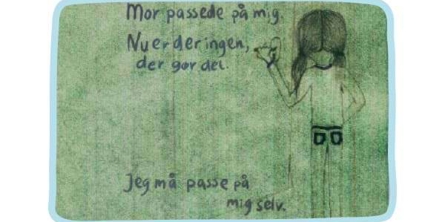 Mor passede på mig.
Nu er der ingen,
der gør det.
Jeg må passe på
mig selv.